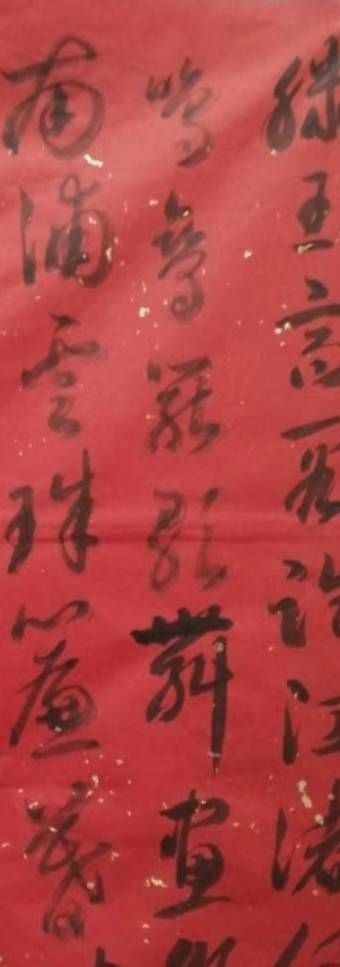 滕王高閣臨江渚
鳴鸞罷歌舞畫
南浦雲珠簾暮